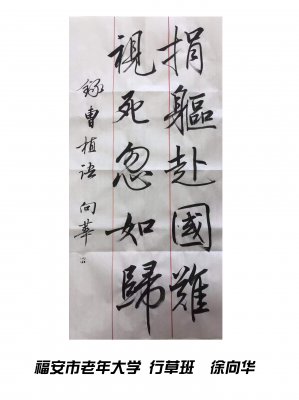 捐軀赴國難
視死忽如歸
錄曹植語 向華
福安市老年大学 行草班 徐向华